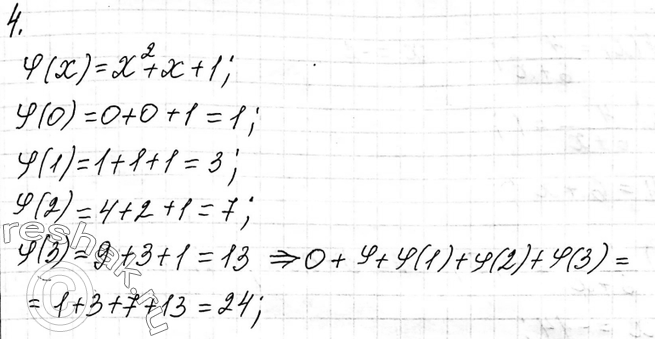 4.
φ(x)=x²+x+1;
φ(0)=0+0+1=1;
φ(1)=1+1+1=3;
φ(2)=4+2+1=7;
φ(3)=9+3+1=13 ⇒0+φ+φ(1)+φ(2)+φ(3)=
=1+3+7+13=24;
reshak.ru